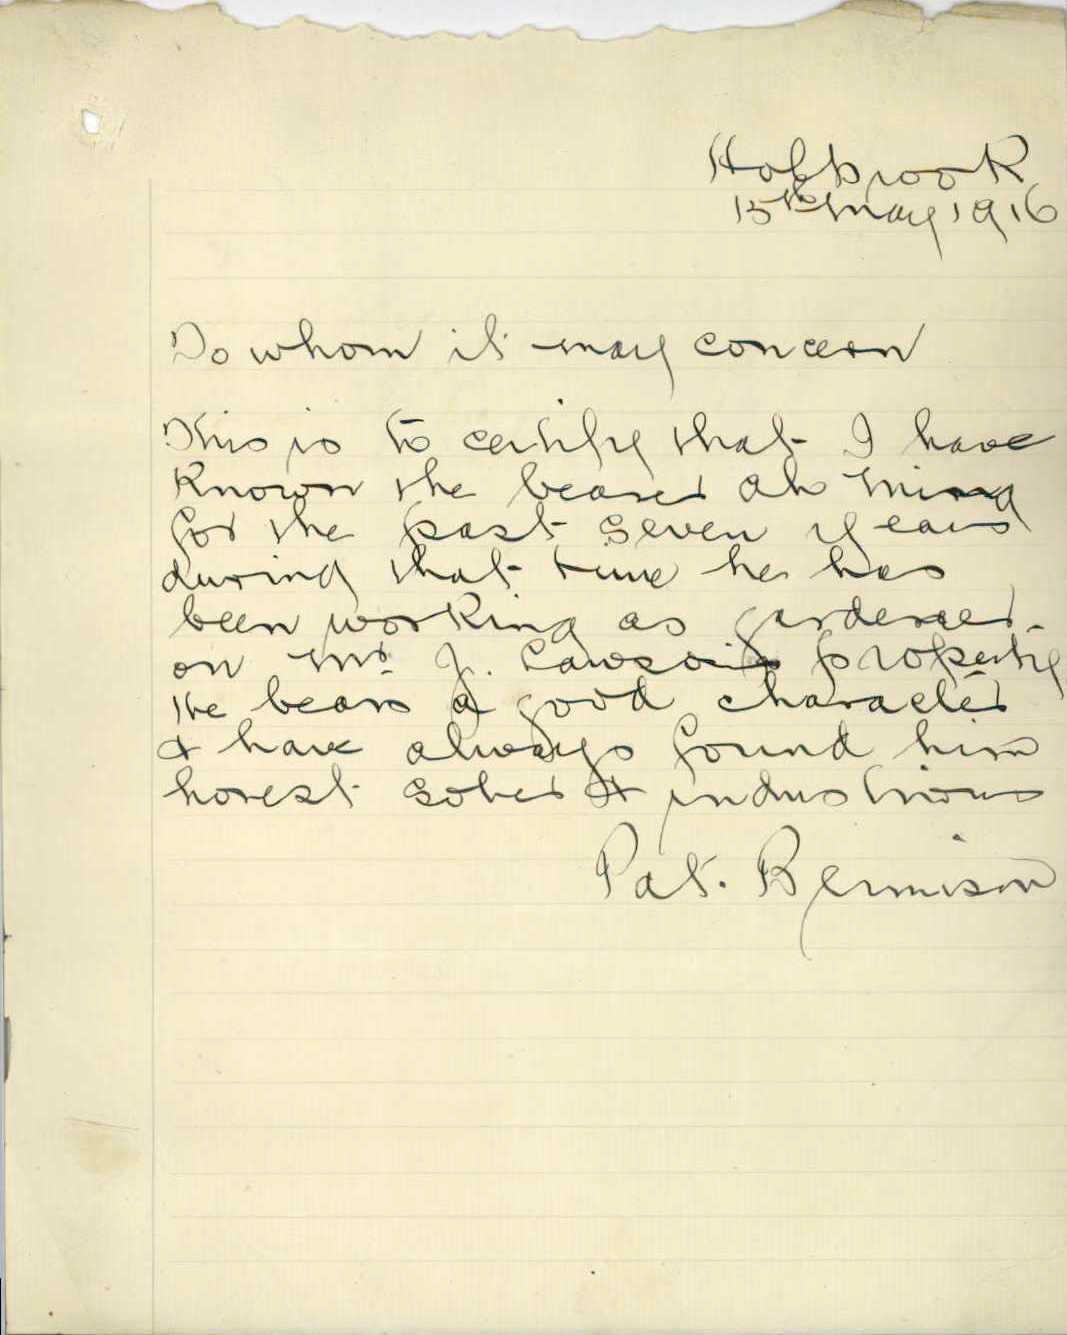 Holbrook
15th May 1916
To whom it may concern
This is to certify that I have
Known the bearer Ah Ming
for the past seven years
during that time he has
been working as gardener
on Mr J. Lawson's property
He bears a good character
& have always found him
honest sober & industrious
Pat.